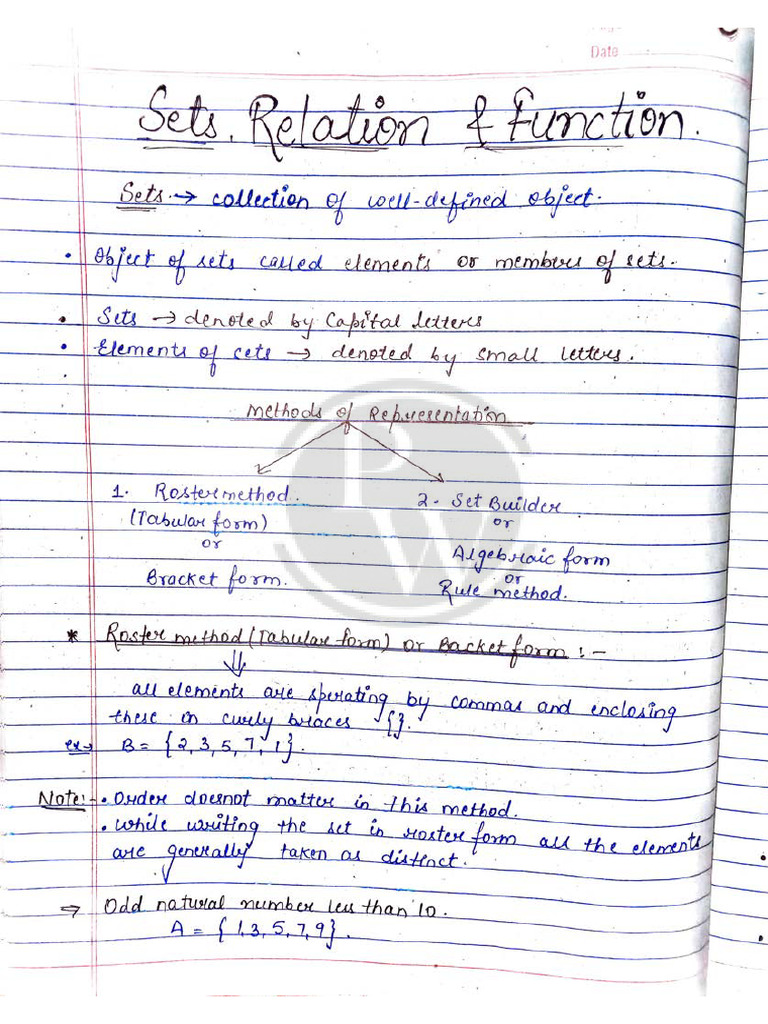 Date
Sets, Relation & Function.
Sets → collection of well-defined object.
• Object of sets called elements or members of sets.
• Sets → denoted by Capital letters
• Elements of cets → denoted by small letters.
Methods of Representation
1. Roster method.
(Tabular form)
or
Bracket form.
2- Set Builder
or
Algebraic form
or
Rule method.
* Roster method (Tabular form) or Backet form :-
all elements are sperating by commas and enclosing
these in curly braces {}.
ex→ B = {2,3,5,7,1}.
Note:- • Order doesnot matter in this method.
• While writing the set in roster form all the elements
are generally taken as distinct.
⇒ Odd natural number less than 10.
A = {1,3,5,7,9}.
PW